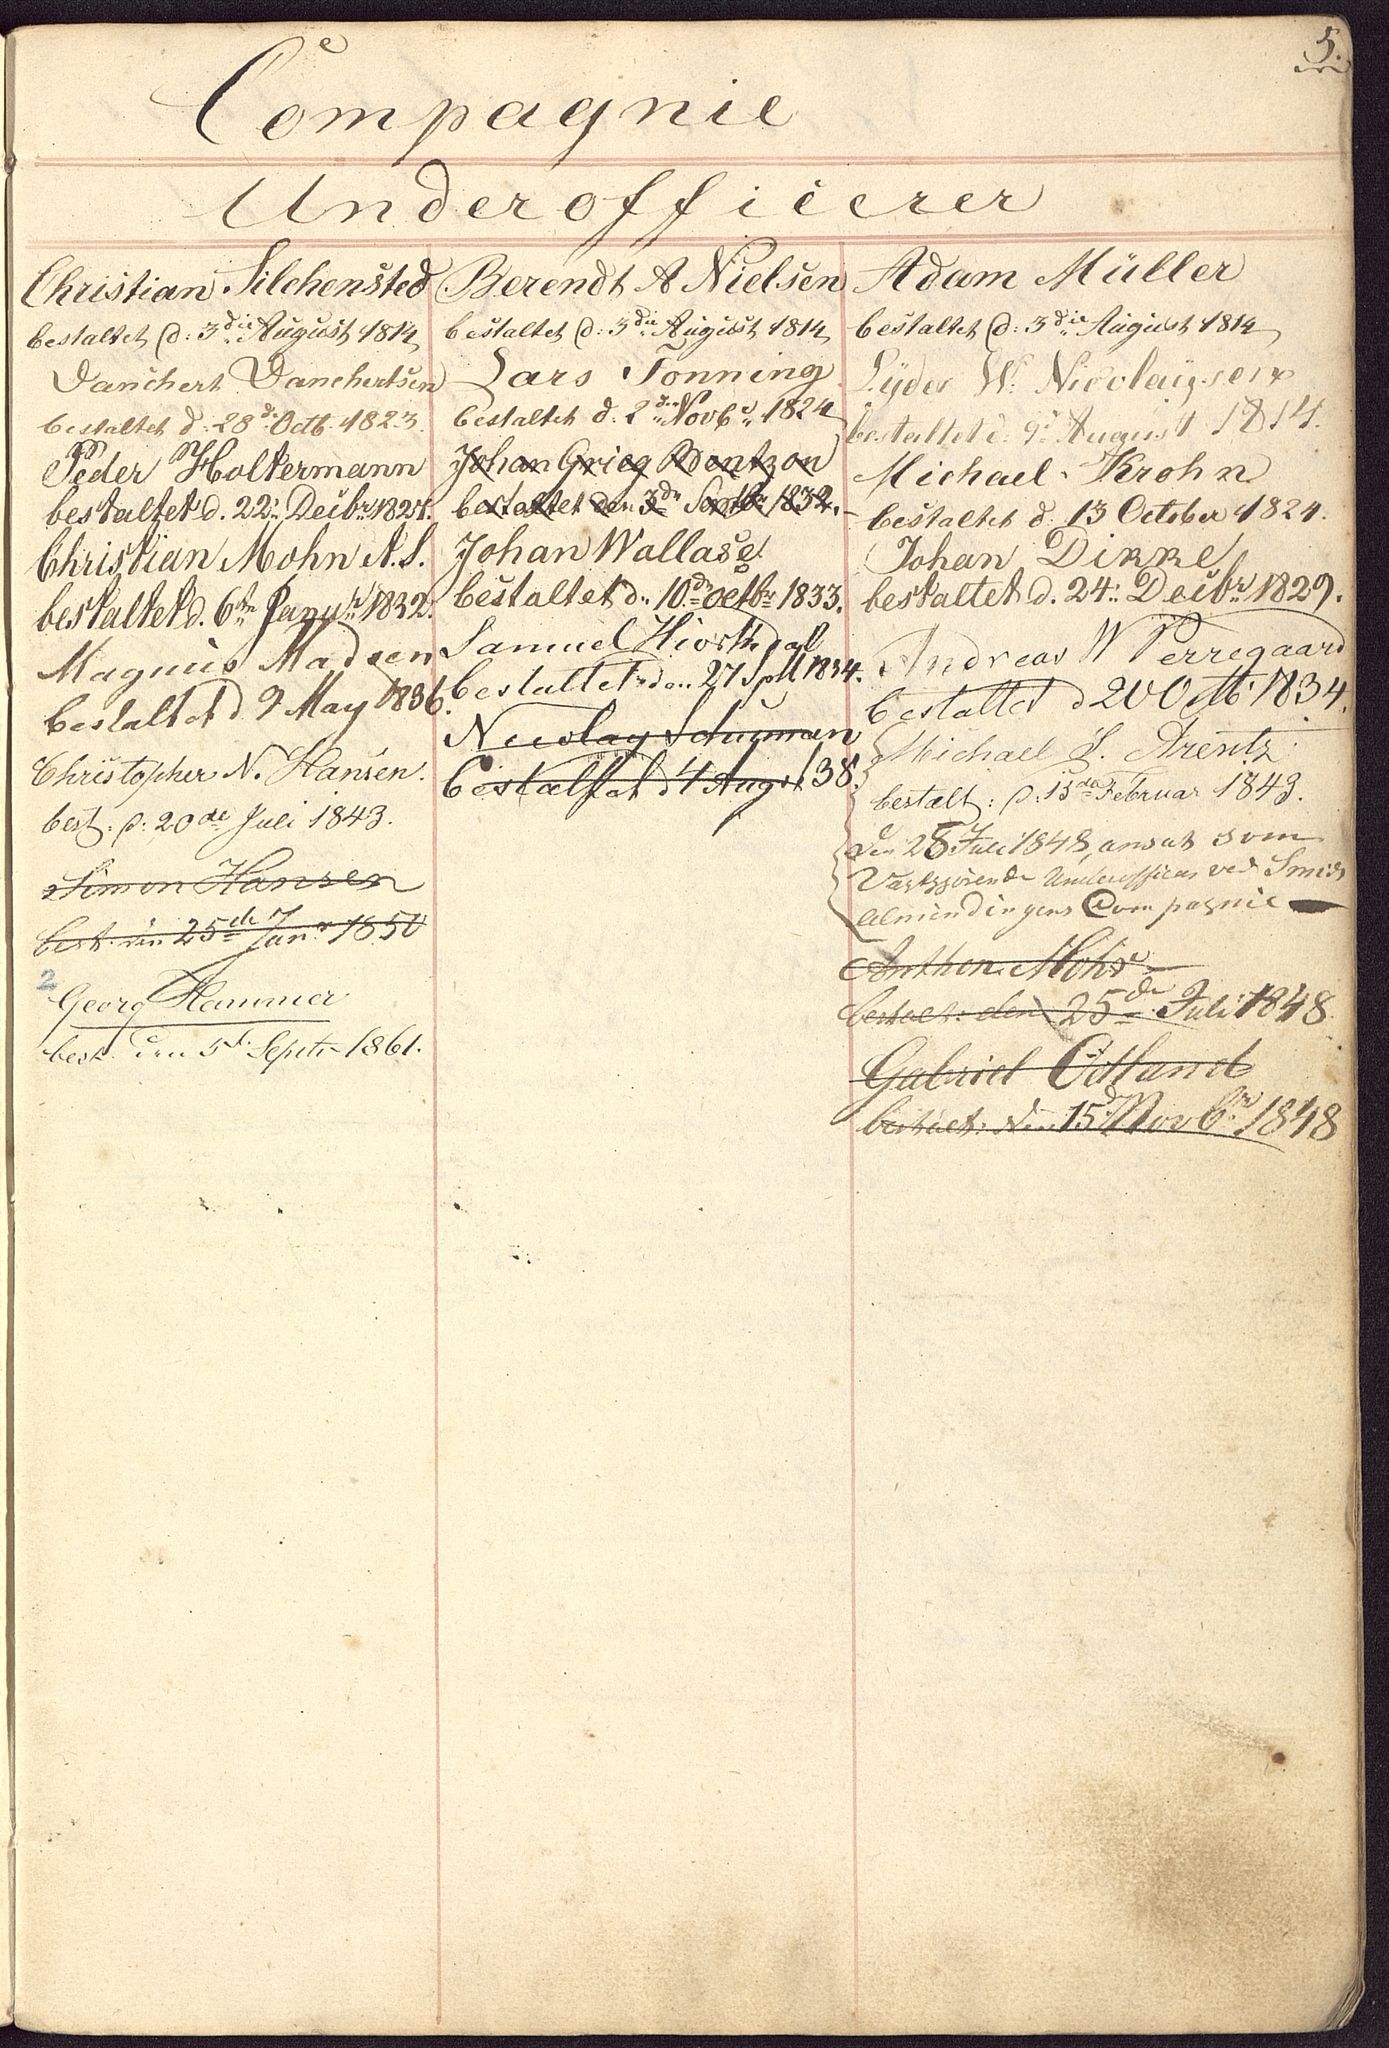 5.
Compagnie
Underofficerer
Christian Silchensted
bestaltet d: 3die August 1814
Danchert Danchertsen
bestaltet d. 28de Octb. 1823.
Peder Holtermann
bestaltet d. 22: Decbr
Christian Mohn A.S.
bestaltet d. 6te Januar 1832.
Magnus Madsen
bestaltet d 9 May 1836.
Christopher N. Hansen.
best: d: 20de Juli 1843.
Simon Hansen
best. den 25de Janr 1850
2
Georg Hammer
best. den 5t Septr 1861.
Berendt A Nielsen
bestaltet d: 3die August 1814
Lars Tonning
bestaltet d. 2den Novbr 1824
Johan Grieg Rentzon
bestaltet den 3de Septbr 1832.
Johan Wallase
bestaltet dn 10de octbr 1833.
Samuel Hiorthdal
bestaltet den 27 Sptt 1834.
Nicolay
bestaltet d 4 Augst 38.
Adam Müller
bestaltet d: 3die August 1814
Lyder W. Nicolaysen
bestaltet d. 9d August 1814.
Michael Krohn
bestaltet d. 13 October 1824.
Johan Dirke
bestaltet d. 24: Decbr 1829.
Andreas W Perregaard
bestaltet d 20 Octb. 1834.
Michael S. Arentz.
bestalt: d: 13de Februar 1843.
den 25 Juli 1848 ansat som
Vagtgjörende Underofficer ved Smids
Almendingens Compagnie
Anthon Mohr
bestalt: den 25de Juli 1848.
Gabriel Ödland
bestalt: den 15d Novbr 1848